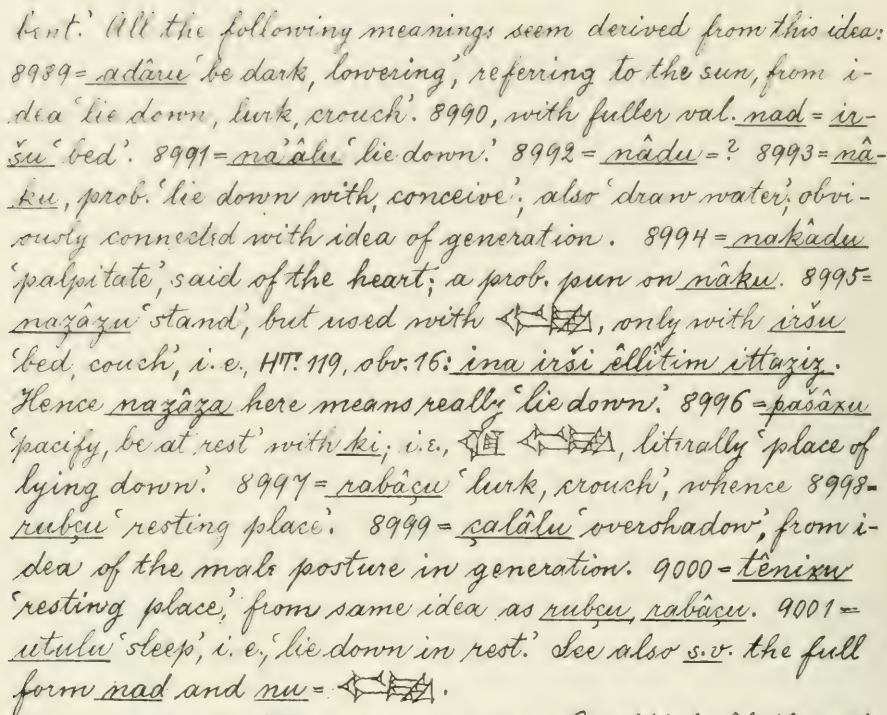 bent.' All the following meanings seem derived from this idea:
8989 = adâru 'be dark, lowering', referring to the sun, from i-
dea 'lie down, lurk, crouch'. 8990, with fuller val. nad = ir-
šu 'bed'. 8991 = na'âlu 'lie down.' 8992 = nâdu = ? 8993 = nâ-
ku, prob. 'lie down with, conceive'; also 'draw water'; obvi-
ously connected with idea of generation. 8994 = nakâdu
'palpitate', said of the heart; a prob. pun on nâku. 8995 =
nazâzu 'stand', but used with , only with iršu
'bed, couch', i. e., HT. 119, obv. 16: ina irši êllîtim ittaziz.
Hence nazâza here means really 'lie down.' 8996 = pašâxu
'pacify, be at rest' with ki; i.e., , literally 'place of
lying down.' 8997 = rabâçu 'lurk, crouch', whence 8998 =
rubçu 'resting place'. 8999 = çalâlu 'overshadow', from i-
dea of the male posture in generation. 9000 = tênixu
'resting place', from same idea as rubçu, rabâçu. 9001 =
utulu 'sleep', i. e., 'lie down in rest.' See also s.v. the full
form nad and nu = .